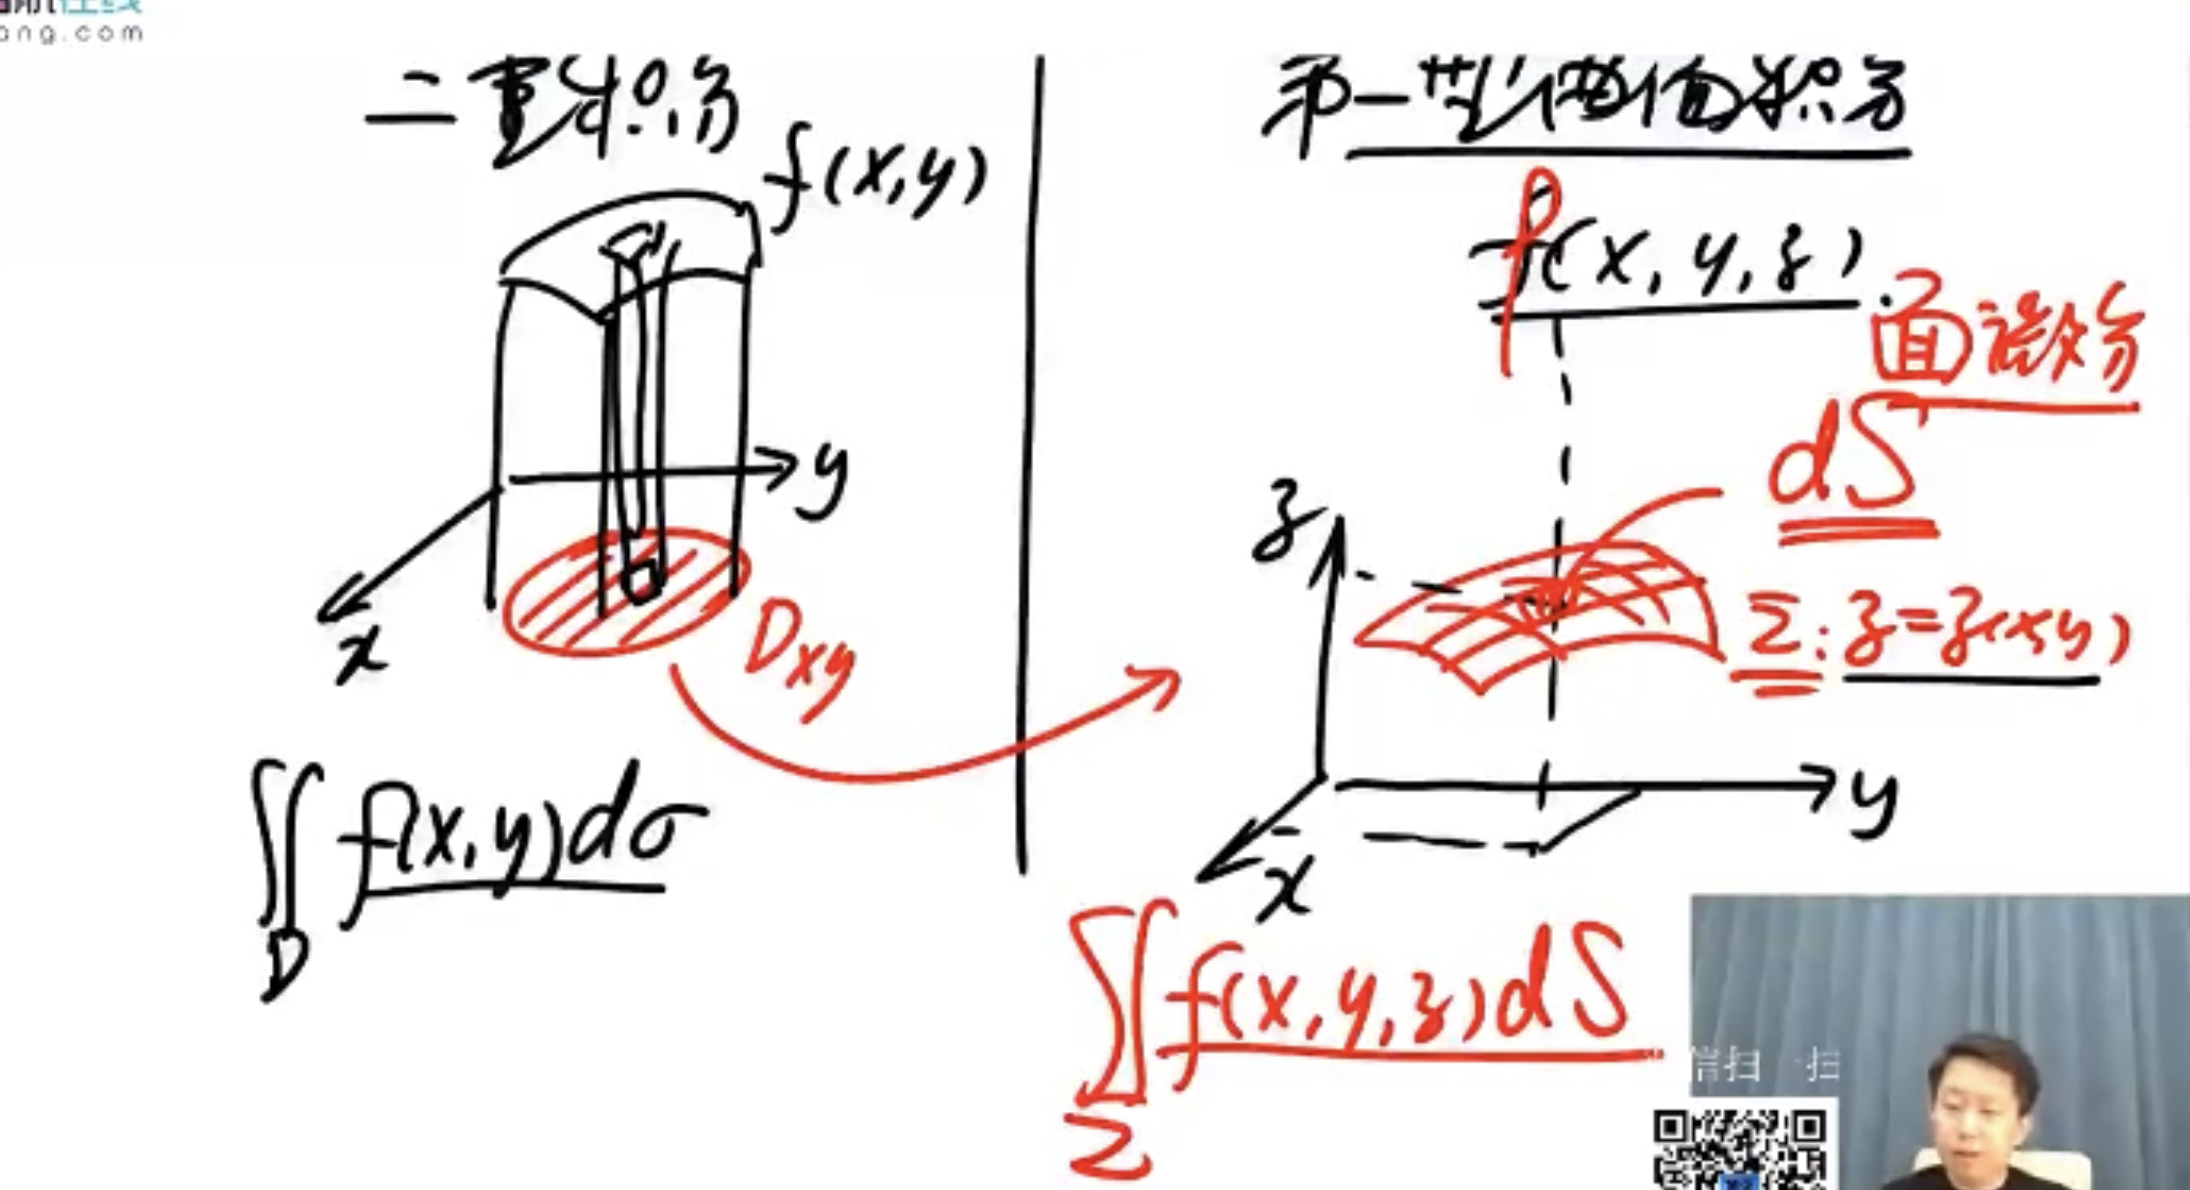 ang.com
二重积分
f(x,y)
y
x
Dxy
∬ f(x,y)dσ
D
第一型曲面积分
f(x,y,z)
面微分
dS
z
Σ: z=z(x,y)
y
x
∬ f(x,y,z)dS
Σ
信扫一扫